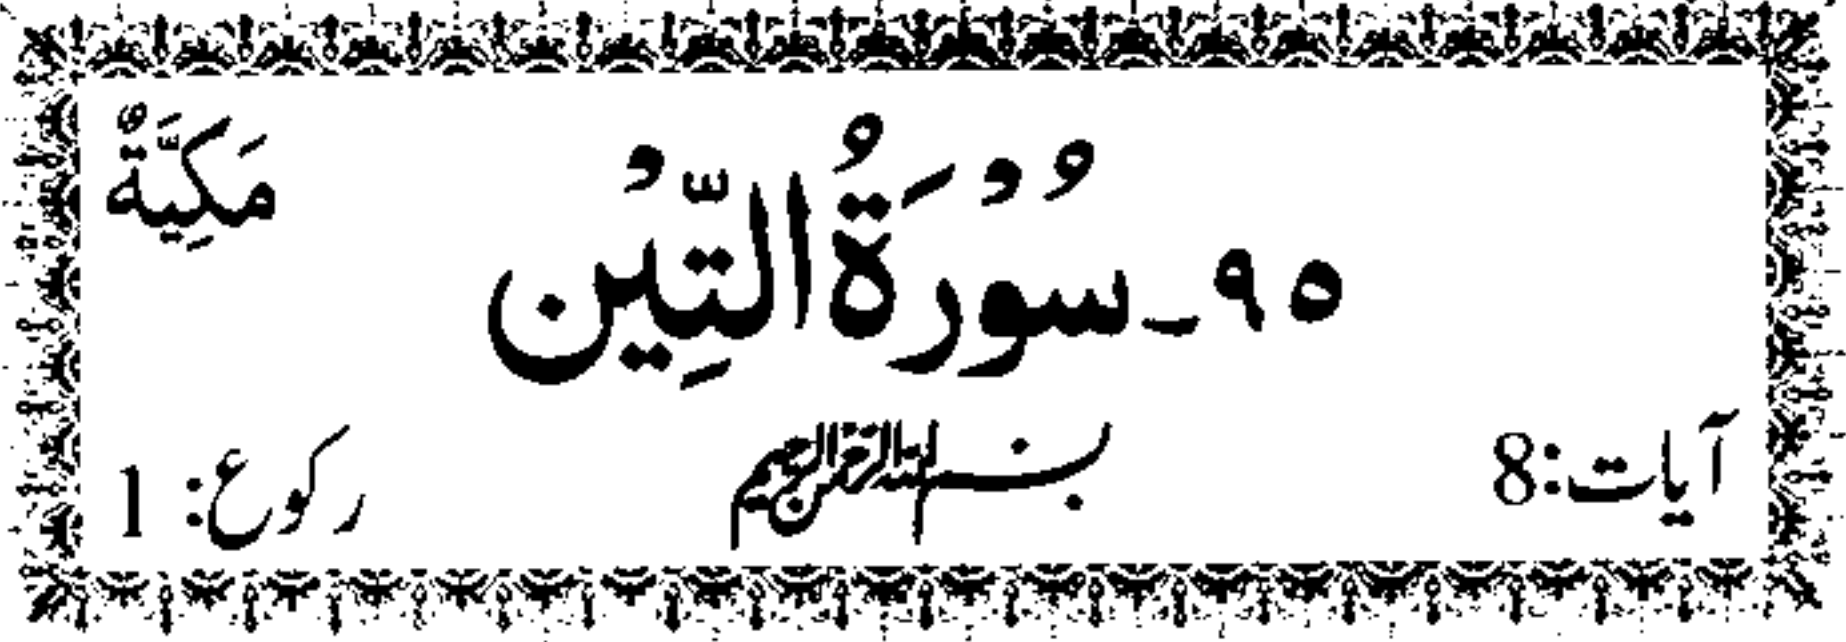 مَكِیَّةٌ
۹۵ـ سُوْرَةُ التِّيْن
آیات:8 بسم الله الرحمن الرحيم رکوع: 1